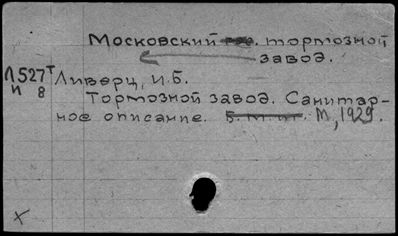 Московский гос. тормозной
завод.
Л527т Ливерц, И.Б.
и 8 Тормозной завод. Санитар-
ное описание. Б.м.и г. М, 1929.